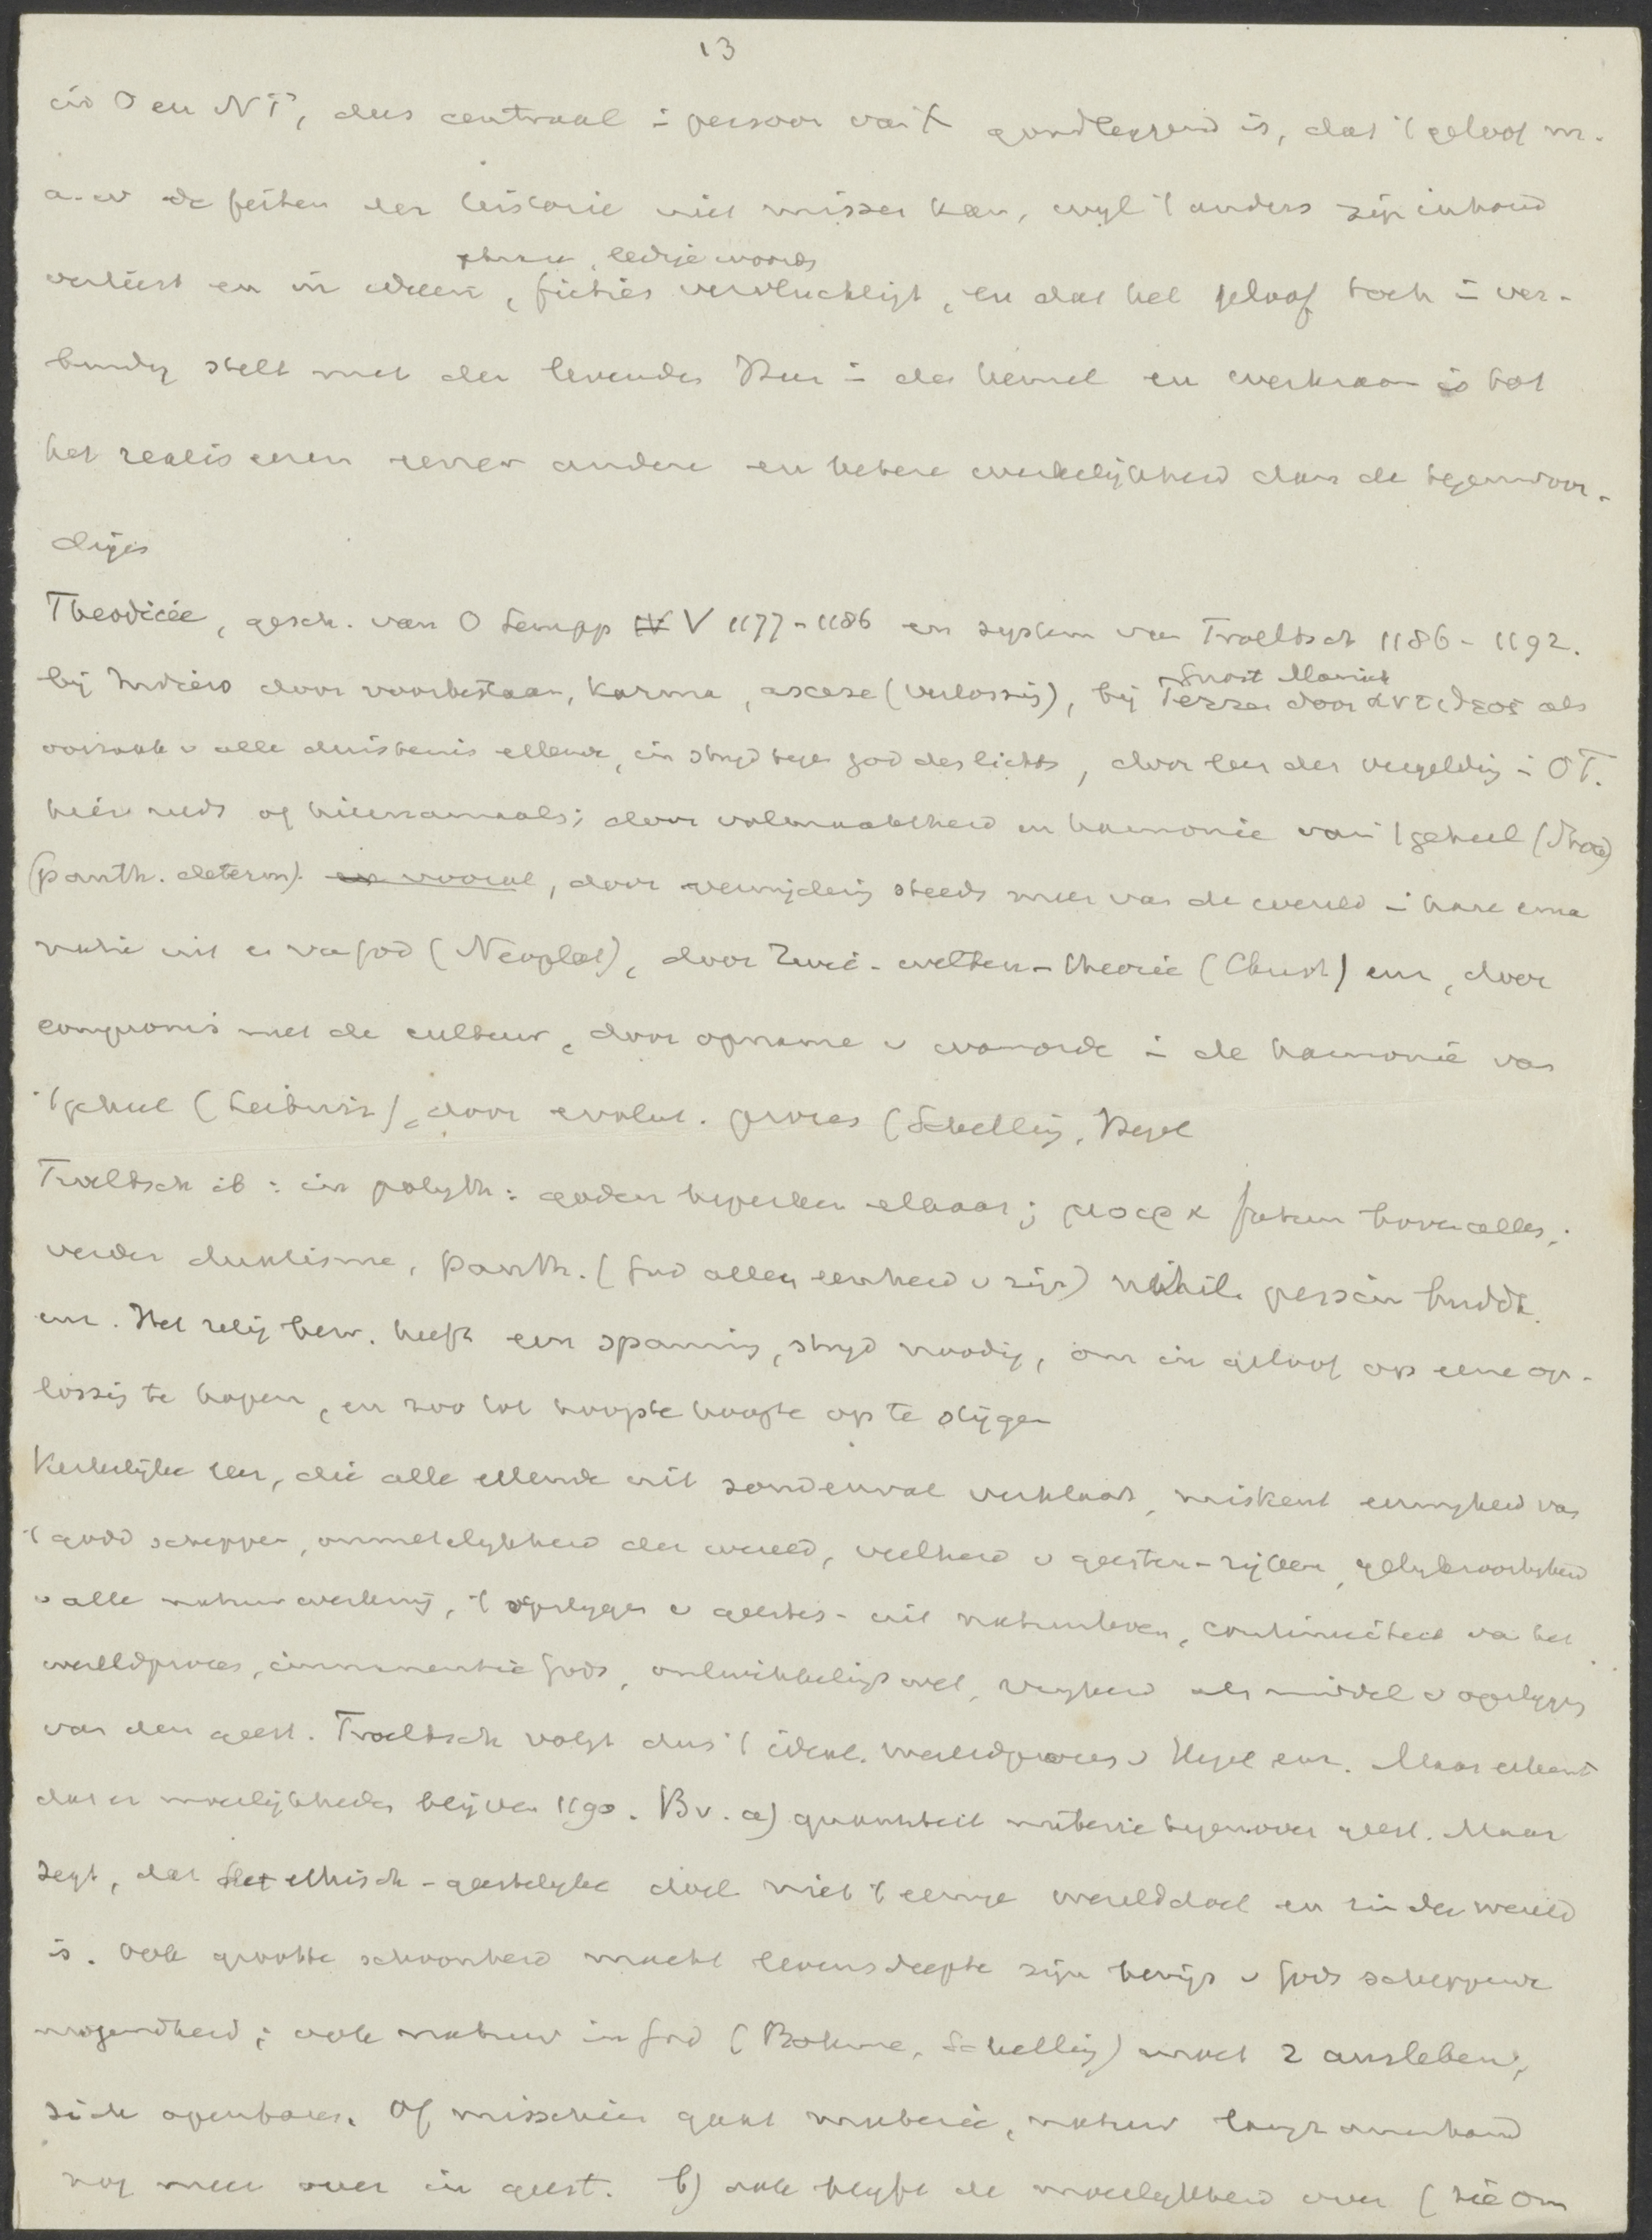 13
in O en NT, dus centraal i persoon van X grondleggend is, dat 't geloof m.
a.w de feiten der historie niet missen kan, wyl 't anders zijn inhoud
ledige woorden
verliest en in ideeen, ficties vervluchtigt, en dat het geloof toch i ver-
bindg stelt met den levenden Heer i den hemel en werkzaam is tot
het realiseren eener andere en betere werkelijkheid dan de tegenwoor-
dige
Theodicée, gesch. van O Lempp IV V 1177-1186 en system van Troeltsch 1186-1192.
Gnost Manich
bij Indiers door voorbestaan, Karma, ascese (verlossing), bij Perzen door ἀντιθεος als
oorzaak v alle duisternis ellende, in stryd tegen god des lichts, door leer der vergeldig i OT.
hier reeds of hiernamaals; door volmaaktheid en harmonie van 't geheel (Stoa)
(panth. determ). en vooral, door verwijderig steeds meer van de wereld i hare ema
natie uit en van God (Neoplat), door Zwei-welten-theorie (Christ) enz, door
compromis met de cultuur, door opname v wanorde i de harmonie van
't geheel (Leibniz), door evolut. proces (Schellig, Hegel
Troeltsch ib: in polyth: goden beperken elkaar; μοιρα fatum boven alles;
verder dualisme, panth. (God alleen eenheid v zijn) nihil. pessim buddh.
enz. Het relig bew. heeft een spannig, stryd noodig, om in geloof op eene op-
lossig te hopen, en zoo tot hoogste hoogte op te stijgen
Kerkelijke leer, die alle ellende uit zondenval verklaart, miskent eeuwigheid van
't godd scheppen, onmetelykheid der wereld, veelheid v geesten-rijken, gelyksoortigheid
v alle natuurwerking, 't opstygen v geestes- uit natuurleven, continuiteit van het
wereldproces, immanentie Gods, ontwikkeligswet, vryheid als middel v opstygen
van den geest. Troeltsch volgt dus 't ideal. wereldproces v Hegel enz. Maar erkent
dat er moeilijkheden blijven 1190. Bv. a) quantiteit materie tegenover geest. Maar
zegt, dat het ethisch-geestelyke doel niet 't eenige werelddoel en zin der wereld
is. Ook grootte schoonheid macht levensdiepte zijn bewijs v Gods scheppende
mogendheid; ook natuur in God (Bohme, Schellig) moet z ausleben,
zich openbaren. Of misschien gaat materie, natuur langzamerhand
nog meer over in geest. b) ook blyft de moeilykheid over (zie om